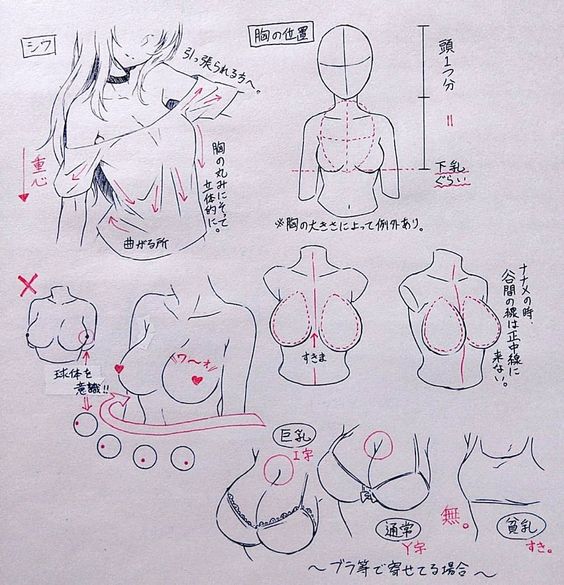 シワ
引っ張られる方へ。
重心
胸の丸みにそって
立体的に。
曲がる所
胸の位置
頭1つ分
=
下乳
ぐらい
※胸の大きさによって例外あり。
×
球体を
意識!!
すきま
ナナメの時、
谷間の線は正中線に
来ない。
巨乳
I字
通常
Y字
無。
貧乳
すき。
～ブラ等で寄せてる場合～